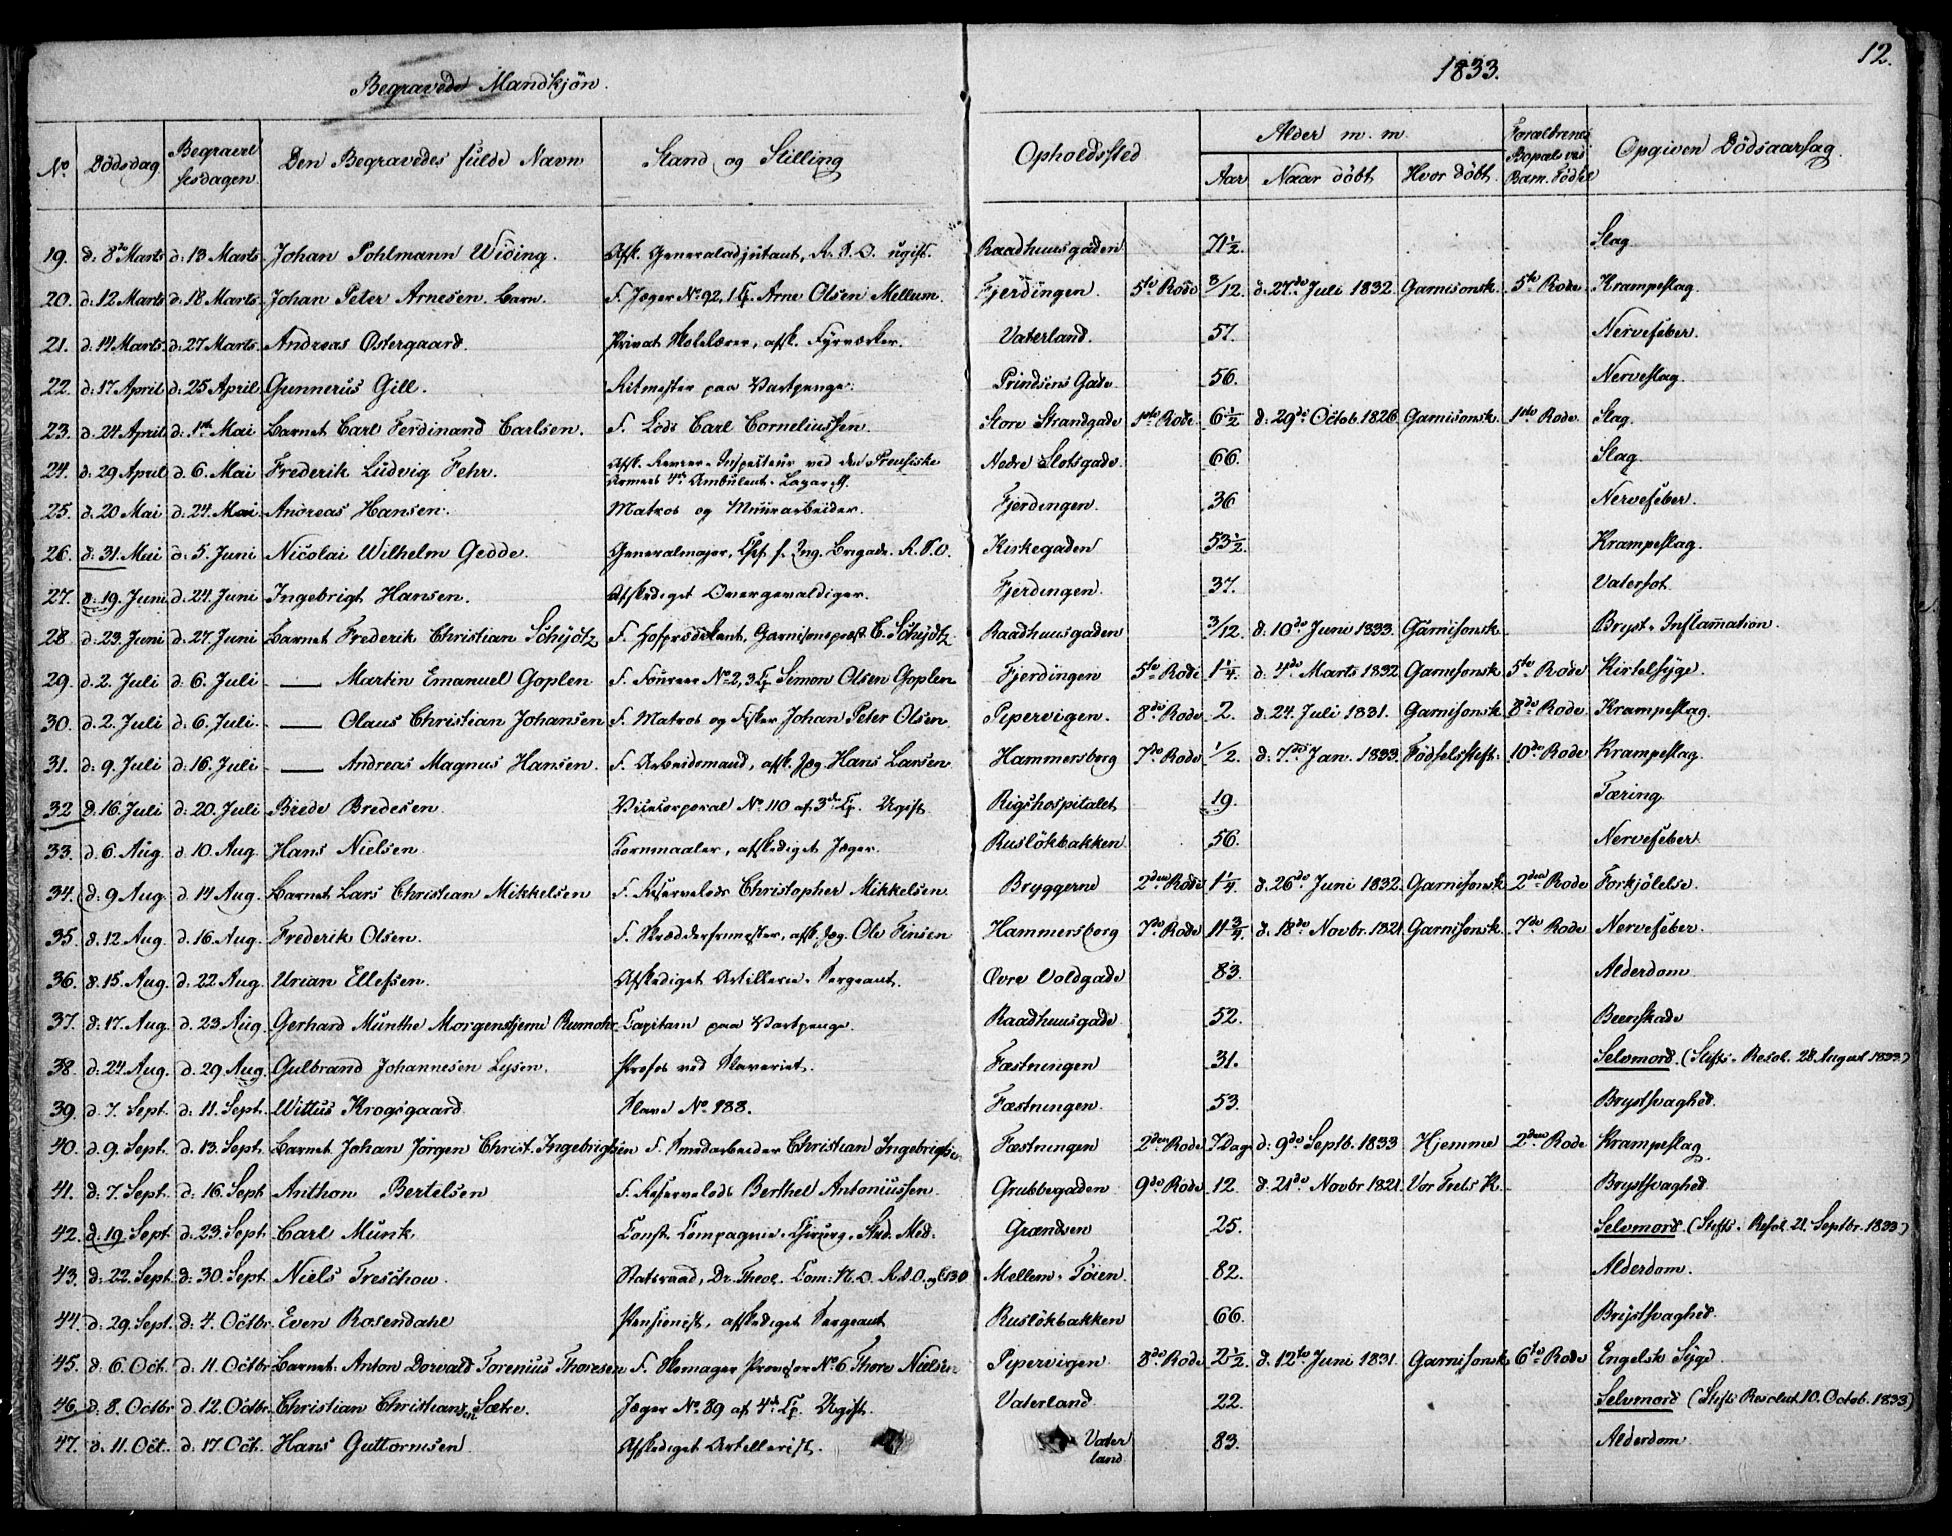 Begravede Mandkjön.
1833.
12.
No Dödsdag Begravel sesdagen Den Begravedes fulde Navn Stand og Stilling Opholdssted Alder m. m. Aar Naar döbt Hvor döbt Forældrenes Bopæl ved Barn. Födsel Opgiven Dödsaarsag
19. d: 8de Marts d: 13 Marts Johan Pohlmann Wiðing. Afsk. Generaladjutant, R.S.O. ugift. Raadhuusgaden 71½. Slag
20. d: 12 Marts d: 18 Marts Johan Peter Arnesen. Barn. F. Jæger No 92, 1 Cp. Arne Olsen Mellum Fjerdingen. 5te Rode 3/12. d: 27de Juli 1832. Garnisonsk. 5te Rode Krampeslag.
21. d. 14 Marts d: 27 Marts. Andreas Östergaard. Privat Skolelærer, afsk. Fyrværker. Vaterland. 57. Nervefeber.
22. d: 17 April d: 25 April Gunnerus Gill. Ritmester paa Vartpenge. Prindsens Gade 56. Nerveslag.
23. d. 24 April d: 1ste Mai Barnet Carl Ferdinand Carlsen. F. Lods Carl Corneliussen. Store Strandgade 1ste Rode 6½ d: 29de Octob. 1826 Garnisonsk. 1ste Rode. Slag.
24. d: 29 April d: 6. Mai Frederik Ludvig Fehr. Afsk. Inspecteur ved den Preusiske Armees 4de Ambulent-Lazareth. Nedre Slotsgade. 66. Slag.
25. d. 20 Mai d: 24. Mai Andreas Hansen. Matros og Muurarbeider. Fjerdingen. 36 Nervefeber.
26. d: 31. Mai d: 5. Juni Nicolai Wilhelm Gedde. Generalmajor, Chef f. Ing. Brigade. R.S.O. Kirkegaden 53½. Krampeslag.
27. d: 19. Juni d: 24. Juni Ingebrigt Hansen. Afskediget Overgevaldiger. Fjerdingen. 37. Vatersot.
28 d: 23. Juni d: 27 Juni Barnet Frederik Christian Schjötz F. Hofprædikant, Garnisonspræst C. Schjötz Raadhuusgaden 3/12. d. 10de Juni 1833. Garnisonsk. Bryst-Inflamation.
29. d: 2. Juli d: 6. Juli — Martin Emanuel Goplen F. Foureer No 2, 3 Cp. Simon Olsen Goplen Fjerdingen 5te Rode 1¼. d: 4de Marts 1832 Garnisonsk 5te Rode Kirtelsyge.
30. d: 2. Juli d: 6. Juli. — Olaus Christian Johansen F. Matros og Fisker Johan Peter Olsen Pipervigen. 8de Rode 2. d: 24. Juli 1831. Garnisonsk 8de Rode. Krampeslag.
31. d: 9. Juli d: 16. Juli — Andreas Magnus Hansen. F. Arbeidsmand, afsk. Jæg. Hans Larsen Hammersborg 7de Rode 1/2. d: 7de Jan. 1833. Födselsstift. 10de Rode Krampeslag.
32 d. 16. Juli d: 20. Juli Brede Bredesen Vicecorporal No 110 af 3die Cp. Ugift Rigshospitalet 19. Tæring.
33. d. 6. Aug d. 10. Aug Hans Nielsen Kornmaaler, afskediget Jæger. Ruslökbakken 56. Nervefeber
34. d: 9 Aug. d. 14 Aug. Barnet Lars Christian Mikkelsen F. Reservelods Christopher Mikkelsen Bryggerne 2den Rode 1¼. d: 26de Juni 1832. Garnisonsk 2den Rode Forkjölelse.
35. d. 12 Aug. d. 16 Aug. Frederik Olsen. F. Skræddersvmester, afsk. Jæg. Ole Finsen Hammersborg 7de Rode 11¾. d. 18de Novbr. 1821 Garnisonsk. 7de Rode Nervefeber.
36. d. 15. Aug. d: 22 Aug. Urian Ellefsen. Afskediget Artillerie-Sergeant. Övre Voldgade 83. Alderdom
37. d: 17. Aug. d. 23 Aug. Gerhard Munthe Morgenstjerne Rumohr Capitain paa Vartpenge. Raadhuusgade 52. Beenskade
38. d. 24 Aug. d. 29 Aug. Gulbrand Johannesen Lysen. Profos ved Slaveriet. Fæstningen 31. Selvmord. (Stifts-Resol. 28 August 1833.)
39. d. 7. Sept. d: 11. Sept. Wittus Krogsgaard Slave No 188. Fæstningen. 53. Brystsvaghed.
40. d. 9. Sept. d. 13. Sept. Barnet Johan Jörgen Christ. Ingebrigtsen F. Smedarbeider Christian Ingebrigtsen Fæstningen 2den Rode 7 Dage d: 9de Septb. 1833 Hjemme 2den Rode Krampeslag
41. d: 7. Sept. d: 16. Sept Anthon Bertelsen F. Reservelods Berthel Antoniussen Grubbegaden 9de Rode 12. d. 21de Novbr 1821. Vor Frels. K. Brystsvaghed
42. d. 19. Sept d. 23. Sept Carl Munk Const. Compagnie-Chirurg, Stud. Med. Grændsen 25. Selvmord. (Stifts-Resol. 21. Septbr. 1833.)
43. d. 22. Sept d: 30. Sept. Niels Treschow. Statsraad, Dr. Theol. Com: N.O. R.D.O. Mellem-Töien. 82. Alderdom.
44. d: 29. Sept. d: 4. Octbr. Even Rosendahl Pensionist, afskediget Sergeant Ruslökbakken 66. Brystsvaghed.
45. d: 6. Oct. d: 11. Octbr Barnet Anton Dorvald Torenius Thoresen F. Skomager No 6 Thore Nielsen Pipervigen 8de Rode 2½. d. 12te Juni 1831. Garnisonsk 6te Rode Engelsk Syge
46. d. 8. Octbr d. 12 Octbr. Christian Christiansen Sætre. Jæger No 89 af 4de Cp. Ugift. Vaterland 22. Selvmord (Stifts Resolut. 10. Octob. 1833)
47. d. 11. Oct. d. 17. Oct. Hans Guttormsen Afskediget Artillerist. Vater land 83. Alderdom